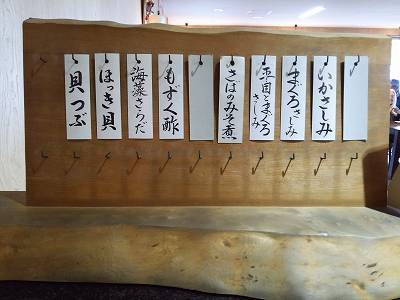 いかさしみ
まぐろさしみ
平目とまぐろ
さしみ
さばのみそ煮
もずく酢
海藻さらだ
ほっき貝
貝つぶ